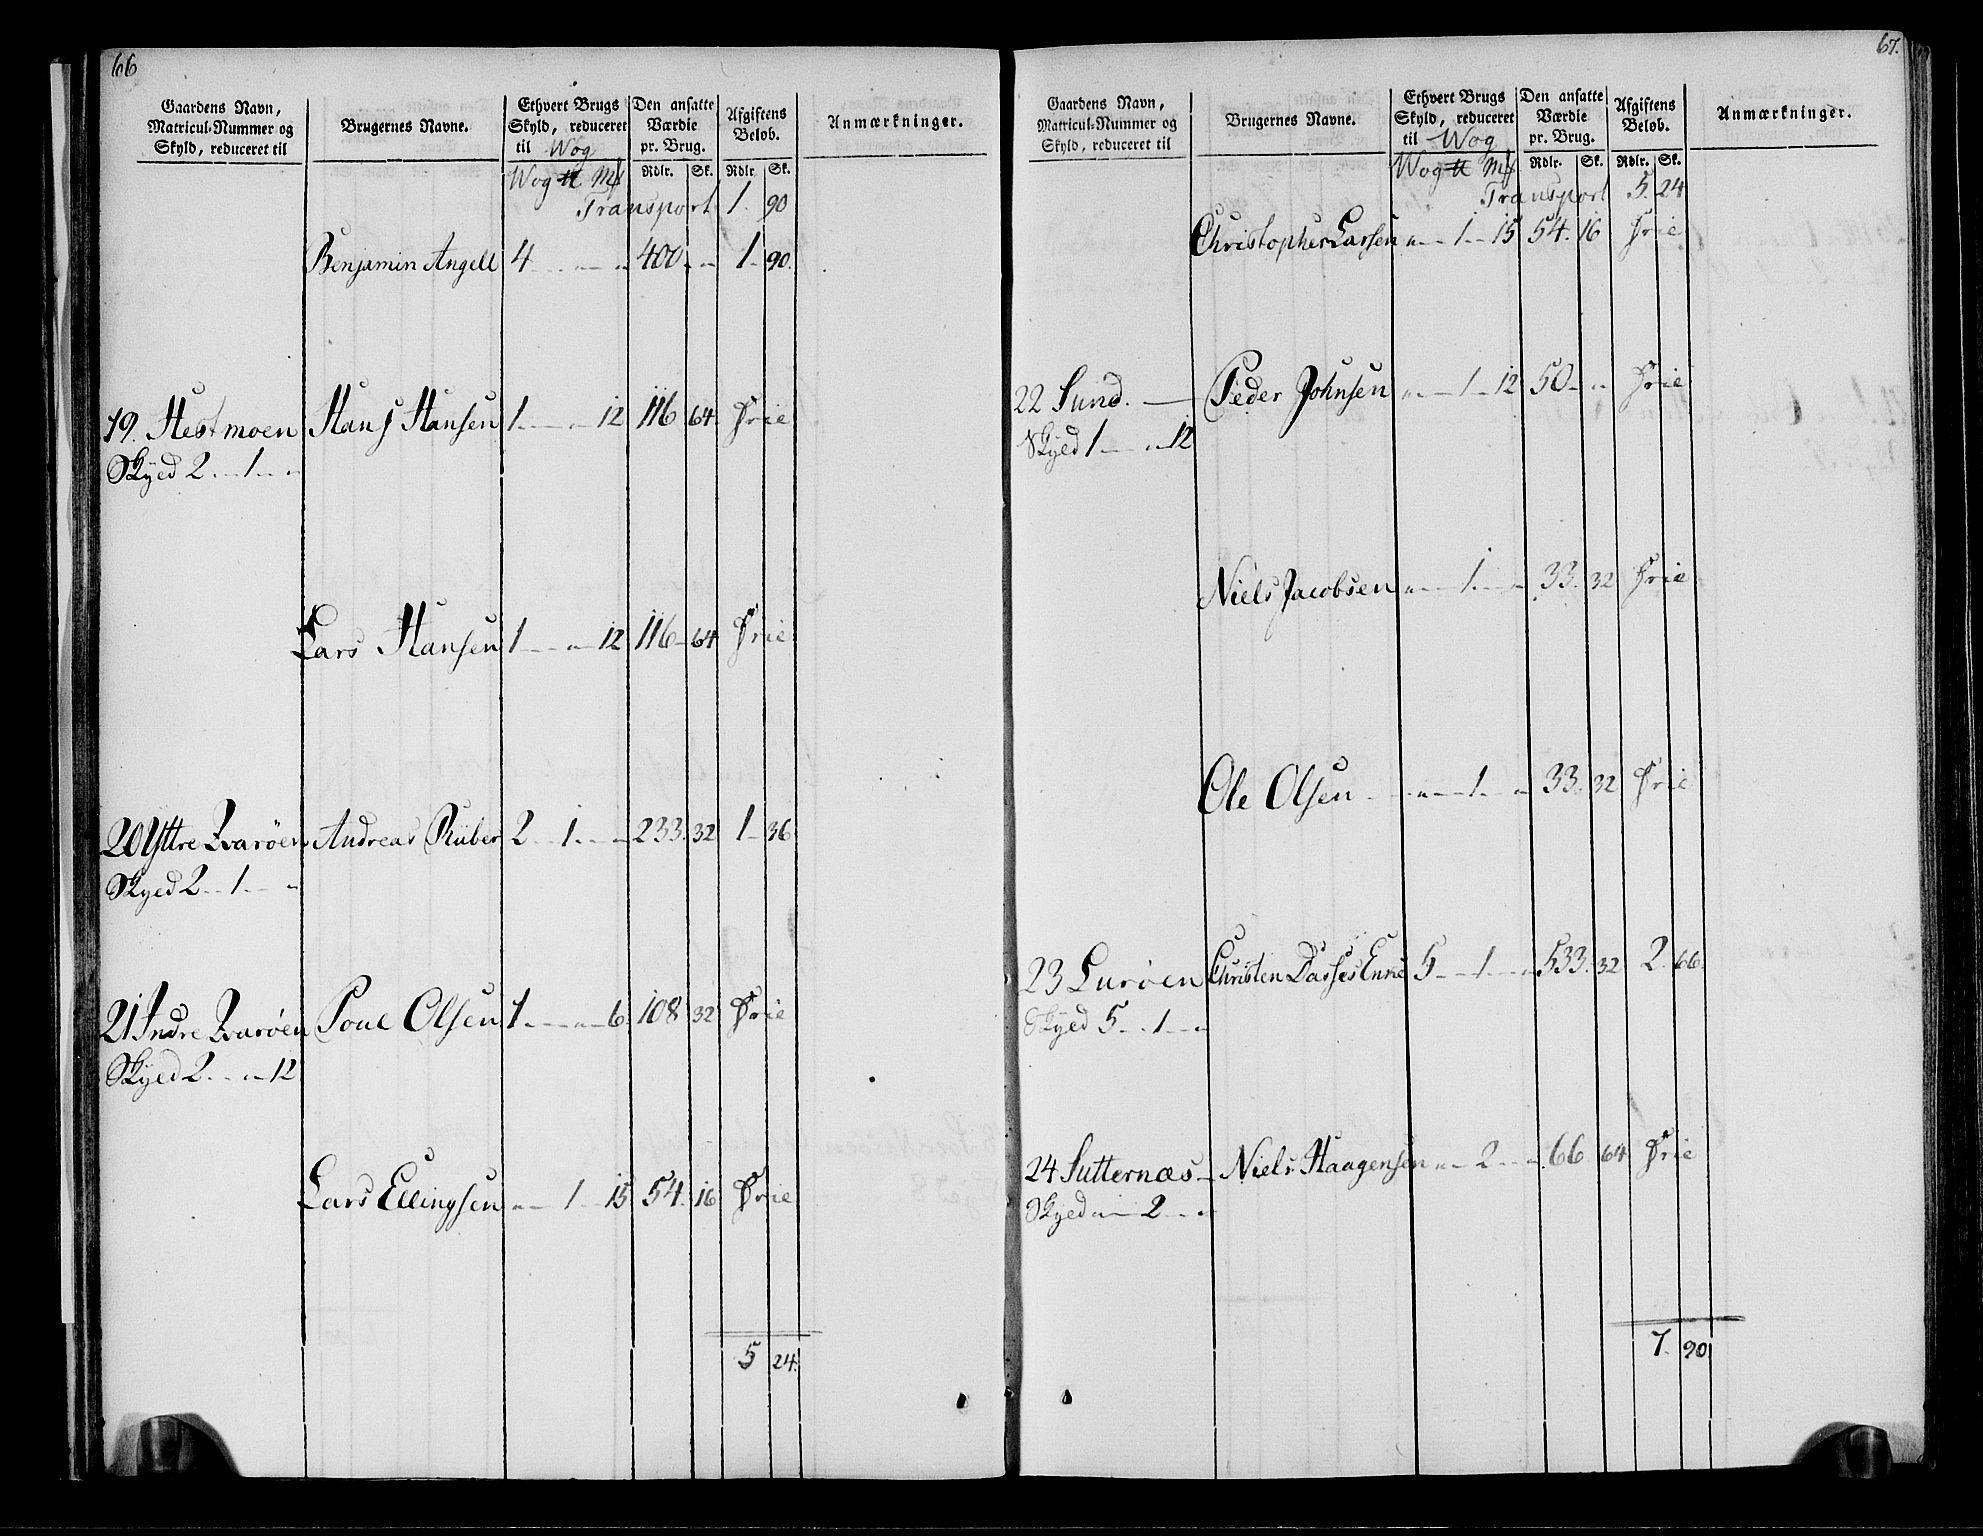 66
Gaardens Navn, Matricul-Nummer og Skyld, reduceret til
Brugernes Navne.
Ethvert Brugs Skyld, reduceret til Wog
Den ansatte Værdie pr. Brug.
Afgiftens Beløb.
Anmærkninger.
Wog ℔ Mk Rdlr. Sk. Rdlr. Sk.
Transport 1. 90
Benjamin Angell 4 - - - - " 400 - - 1 - 90.
19. Hestmoen Hans Hansen 1 - - " - 12 116 64 Frie
Skyed 2 - - 1 - - "
Lars Hansen 1 - - " - 12 116 - 64 Frie
20 Yttre Qvarøen Andreas Rüber 2 - - 1 - - " 233. 32 1 - 36
Skyed 2 - - 1 - - "
21 Indre Qvarøen Poul Olsen 1 - - " - 6. 108 32 Frie
Skyed 2 - - " - 12
Lars Ellingsen " - - 1 - - 15 54. 16 Frie
5 24.
67.
Gaardens Navn, Matricul-Nummer og Skyld, reduceret til
Brugernes Navne.
Ethvert Brugs Skyld, reduceret til Wog
Den ansatte Værdie pr. Brug.
Afgiftens Beløb.
Anmærkninger.
Wog ℔ Mk Rdlr. Sk. Rdlr. Sk.
Transport 5. 24
Christopher Larsen " - - 1 - - 15 54. 16 Frie
22 Sund. Peder Johnsen " - - 1 - - 12 50 - " Frie
Skyed 1 - - " - 12
Niels Jacobsen " - - 1 - - " 33. 32 Frie
Ole Olsen " - - 1 - - " 33. 32 Frie
23 Lurøen Christen Dasses Enke 5 - - 1 - - " 533. 32 2. 66.
Skyed 5 - - 1 - - "
24 Sutternæs Niels Haagensen " - - 2 - - " 66. 64 Frie
Skyed " - - 2 - - "
7. 90